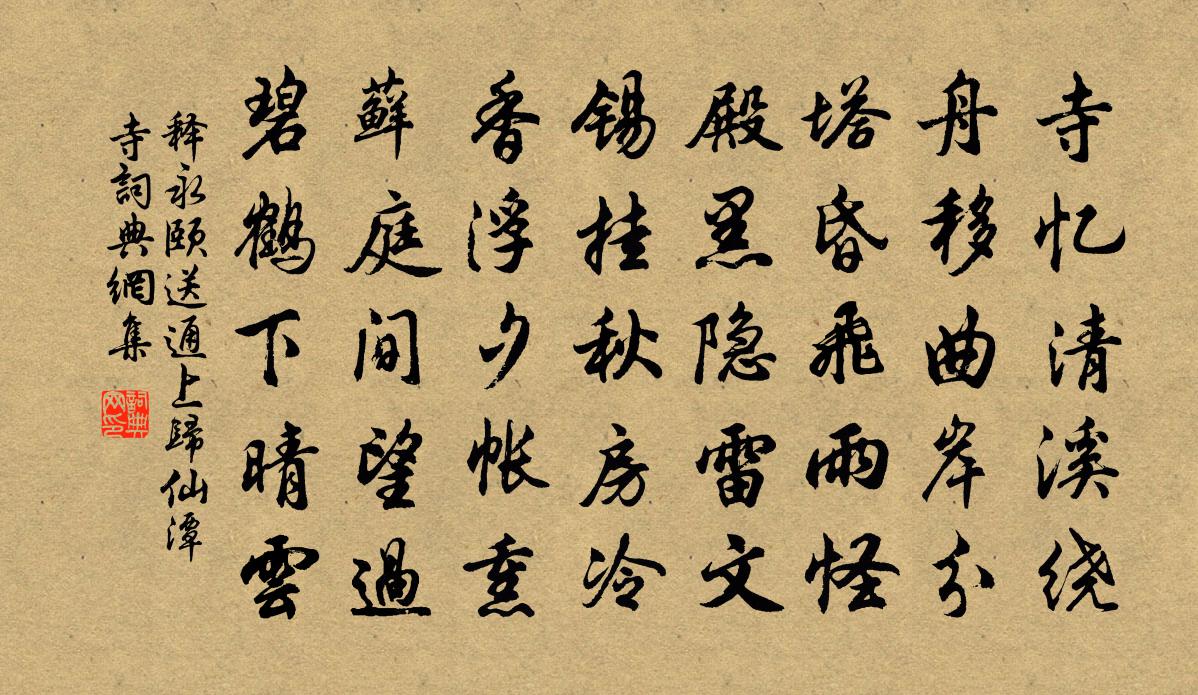 寺忆清溪绕
舟移曲岸分
塔昏飛雨怪
殿黑隐雷文
锡挂秋房冷
香浮夕帐熏
蘚庭间望過
碧鶴下晴雲
释永颐送通上歸仙潭
寺詞典網集
詞典
网印